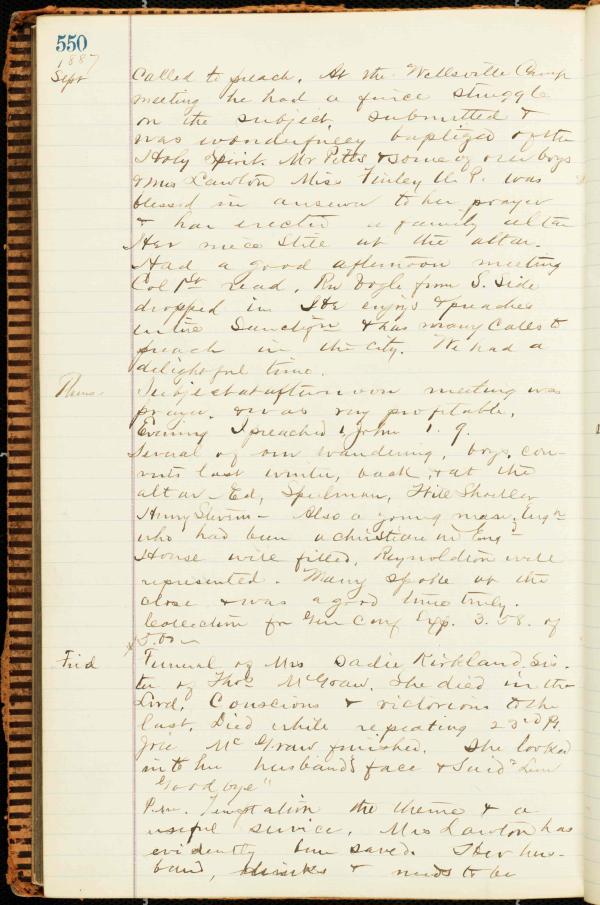 550
1887
Sept called to preach. At the Wellsville Camp
meeting he had a fierce struggle
on the subject, submitted &
was wonderfully baptized of the
Holy Spirit. Mr Pitts & some of our boys
& Mrs Lawton Miss Finley U. P. was
blessed in answer to her prayer
& has erected a family altar
Her niece at the altar.
Had a good afternoon meeting
Col 1st read. Rev Dogle from S. Side
dropped in He enjoys & preaches
entire Sanctifn & has many calls to
preach in the city. We had a
delightful time.
Thurs Subject at afternoon meeting was
prayer. & was very profitable.
Evening I preached 1 John 1. 9.
Several of our wandering, boys, con-
verts last winter, back & at the
altar - Ed, Speelman, Shoeller
Henry - Also a young man,
who had been a christian in Engd
House well filled, Reynoldton well
represented. Many spoke at the
close & was a good time truly.
Collection for Gen Conf Exp. 3.58. of
5.00
Frid Funeral of Mrs Sadie Kirkland. Sis-
ter of Thos McGraw. She died in the
Lord. Conscious & victorious to the
last. Died while repeating 23rd Ps.
Joie McGraw finished. She looked
into her husband's face & said
Goodbye"
P.m. Temptation the theme & a
useful service. Mrs Lawton has
evidently been saved. Her hus-
band, drinks & needs to be